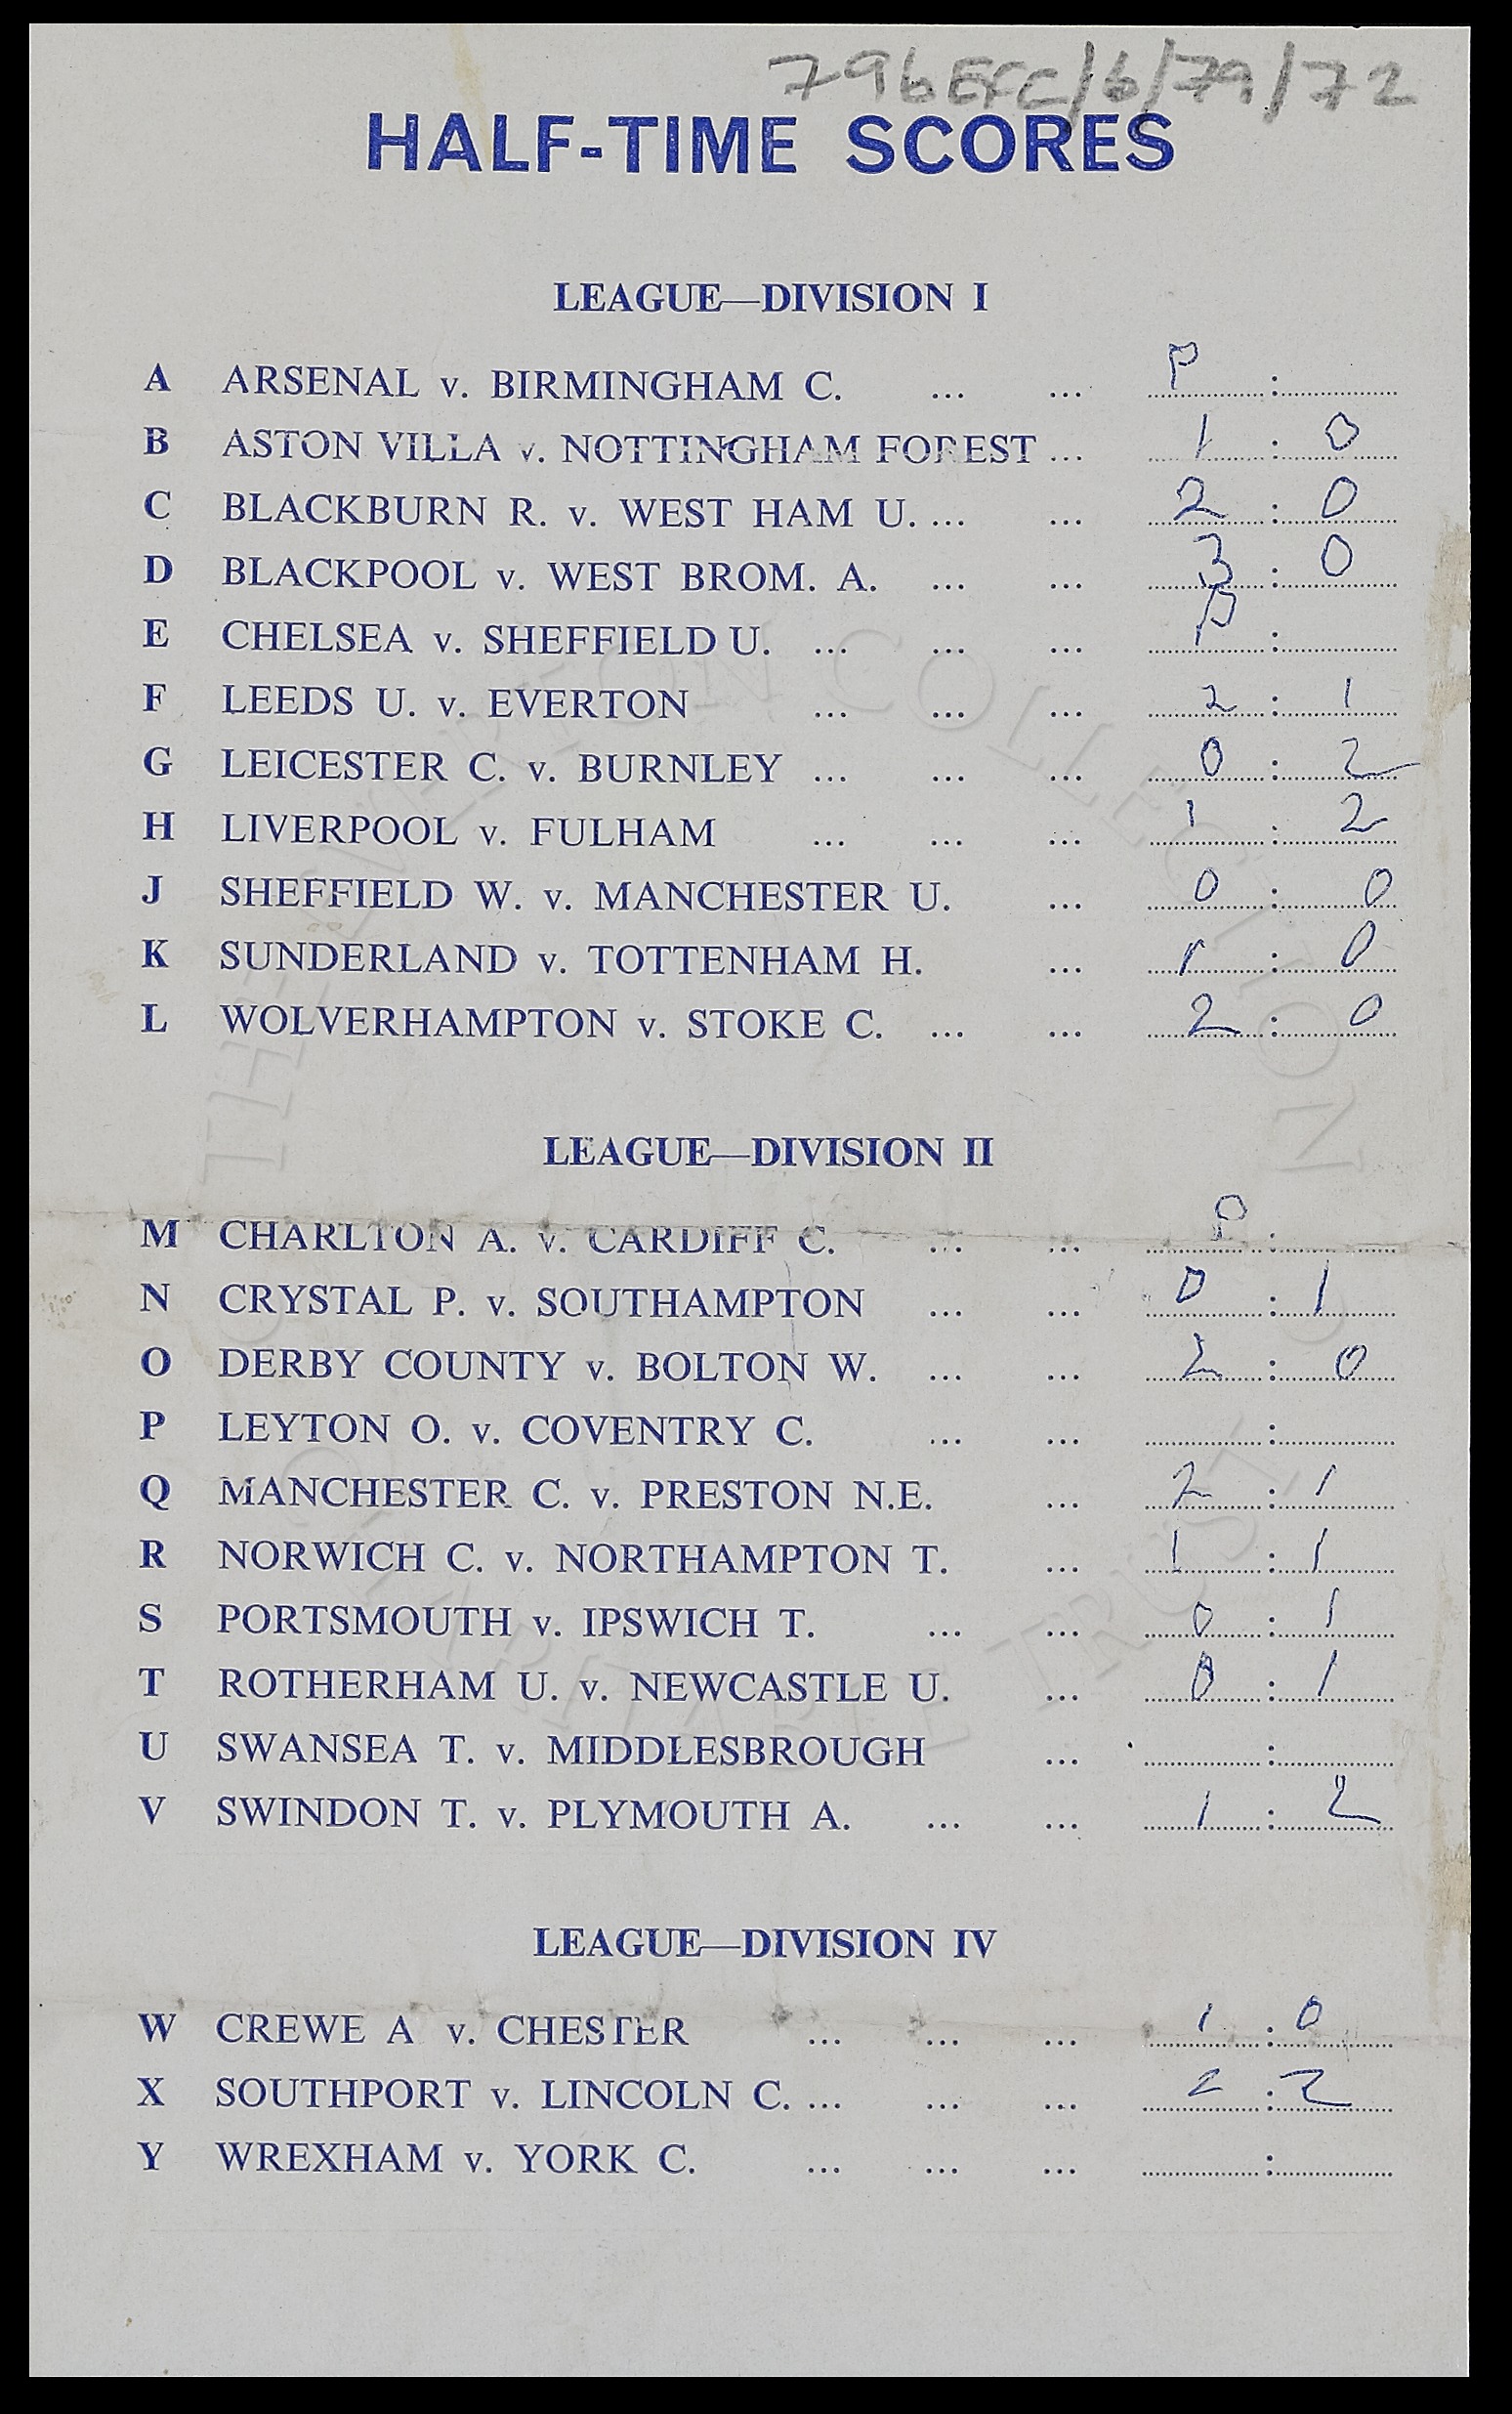 796 EFC/6/79/72
HALF-TIME SCORES
LEAGUE—DIVISION I
A ARSENAL v. BIRMINGHAM C. ... ... P :
B ASTON VILLA v. NOTTINGHAM FOREST ... 1 : 0
C BLACKBURN R. v. WEST HAM U. ... ... 2 : 0
D BLACKPOOL v. WEST BROM. A. ... ... 3 : 0
E CHELSEA v. SHEFFIELD U. ... ... ... P :
F LEEDS U. v. EVERTON ... ... ... 2 : 1
G LEICESTER C. v. BURNLEY ... ... ... 0 : 2
H LIVERPOOL v. FULHAM ... ... ... 1 : 2
J SHEFFIELD W. v. MANCHESTER U. ... 0 : 0
K SUNDERLAND v. TOTTENHAM H. ... 1 : 0
L WOLVERHAMPTON v. STOKE C. ... ... 2 : 0
LEAGUE—DIVISION II
M CHARLTON A. v. CARDIFF C. ... ... P :
N CRYSTAL P. v. SOUTHAMPTON ... ... 0 : 1
O DERBY COUNTY v. BOLTON W. ... ... 2 : 0
P LEYTON O. v. COVENTRY C. ... ... :
Q MANCHESTER C. v. PRESTON N.E. ... 2 : 1
R NORWICH C. v. NORTHAMPTON T. ... 1 : 1
S PORTSMOUTH v. IPSWICH T. ... ... 0 : 1
T ROTHERHAM U. v. NEWCASTLE U. ... 0 : 1
U SWANSEA T. v. MIDDLESBROUGH ... :
V SWINDON T. v. PLYMOUTH A. ... ... 1 : 2
LEAGUE—DIVISION IV
W CREWE A v. CHESTER ... ... ... 1 : 0
X SOUTHPORT v. LINCOLN C. ... ... ... 2 : 2
Y WREXHAM v. YORK C. ... ... ... :
THE EVERTON COLLECTION
CHARITABLE TRUST